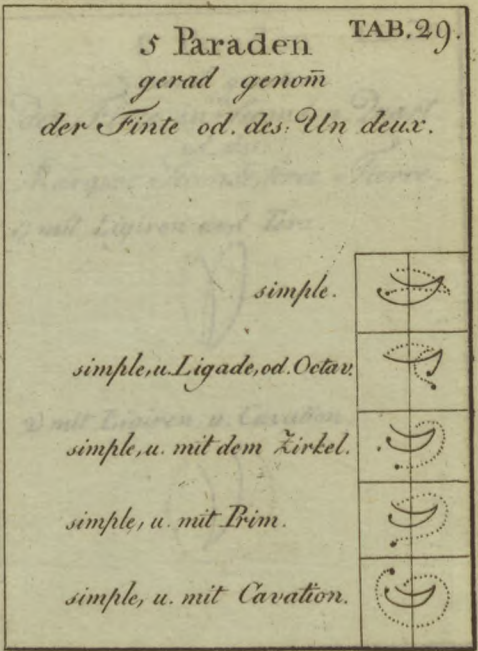 TAB. 29.
5 Paraden
gerad genom̄
der Finte od. des: Un deux.
simple.
simple, u. Ligade, od. Octav.
simple, u. mit dem Zirkel.
simple, u. mit Prim.
simple, u. mit Cavation.